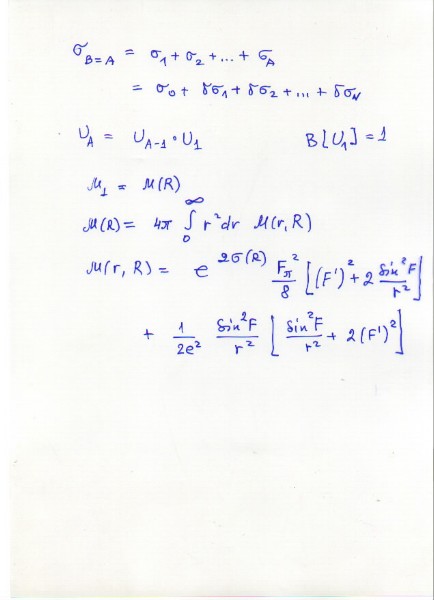 σ_{B=A} = σ₁ + σ₂ + ... + σ_A
= σ₀ + δσ₁ + δσ₂ + ... + δσ_N
U_A = U_{A-1} · U₁    B[U₁] = 1
M₁ = M(R)
M(R) = 4π ∫₀^∞ r² dr M(r, R)
M(r, R) = e^{2σ(R)} F_π²/8 [(F')² + 2 sin²F/r²]
+ 1/2e² sin²F/r² [sin²F/r² + 2(F')²]